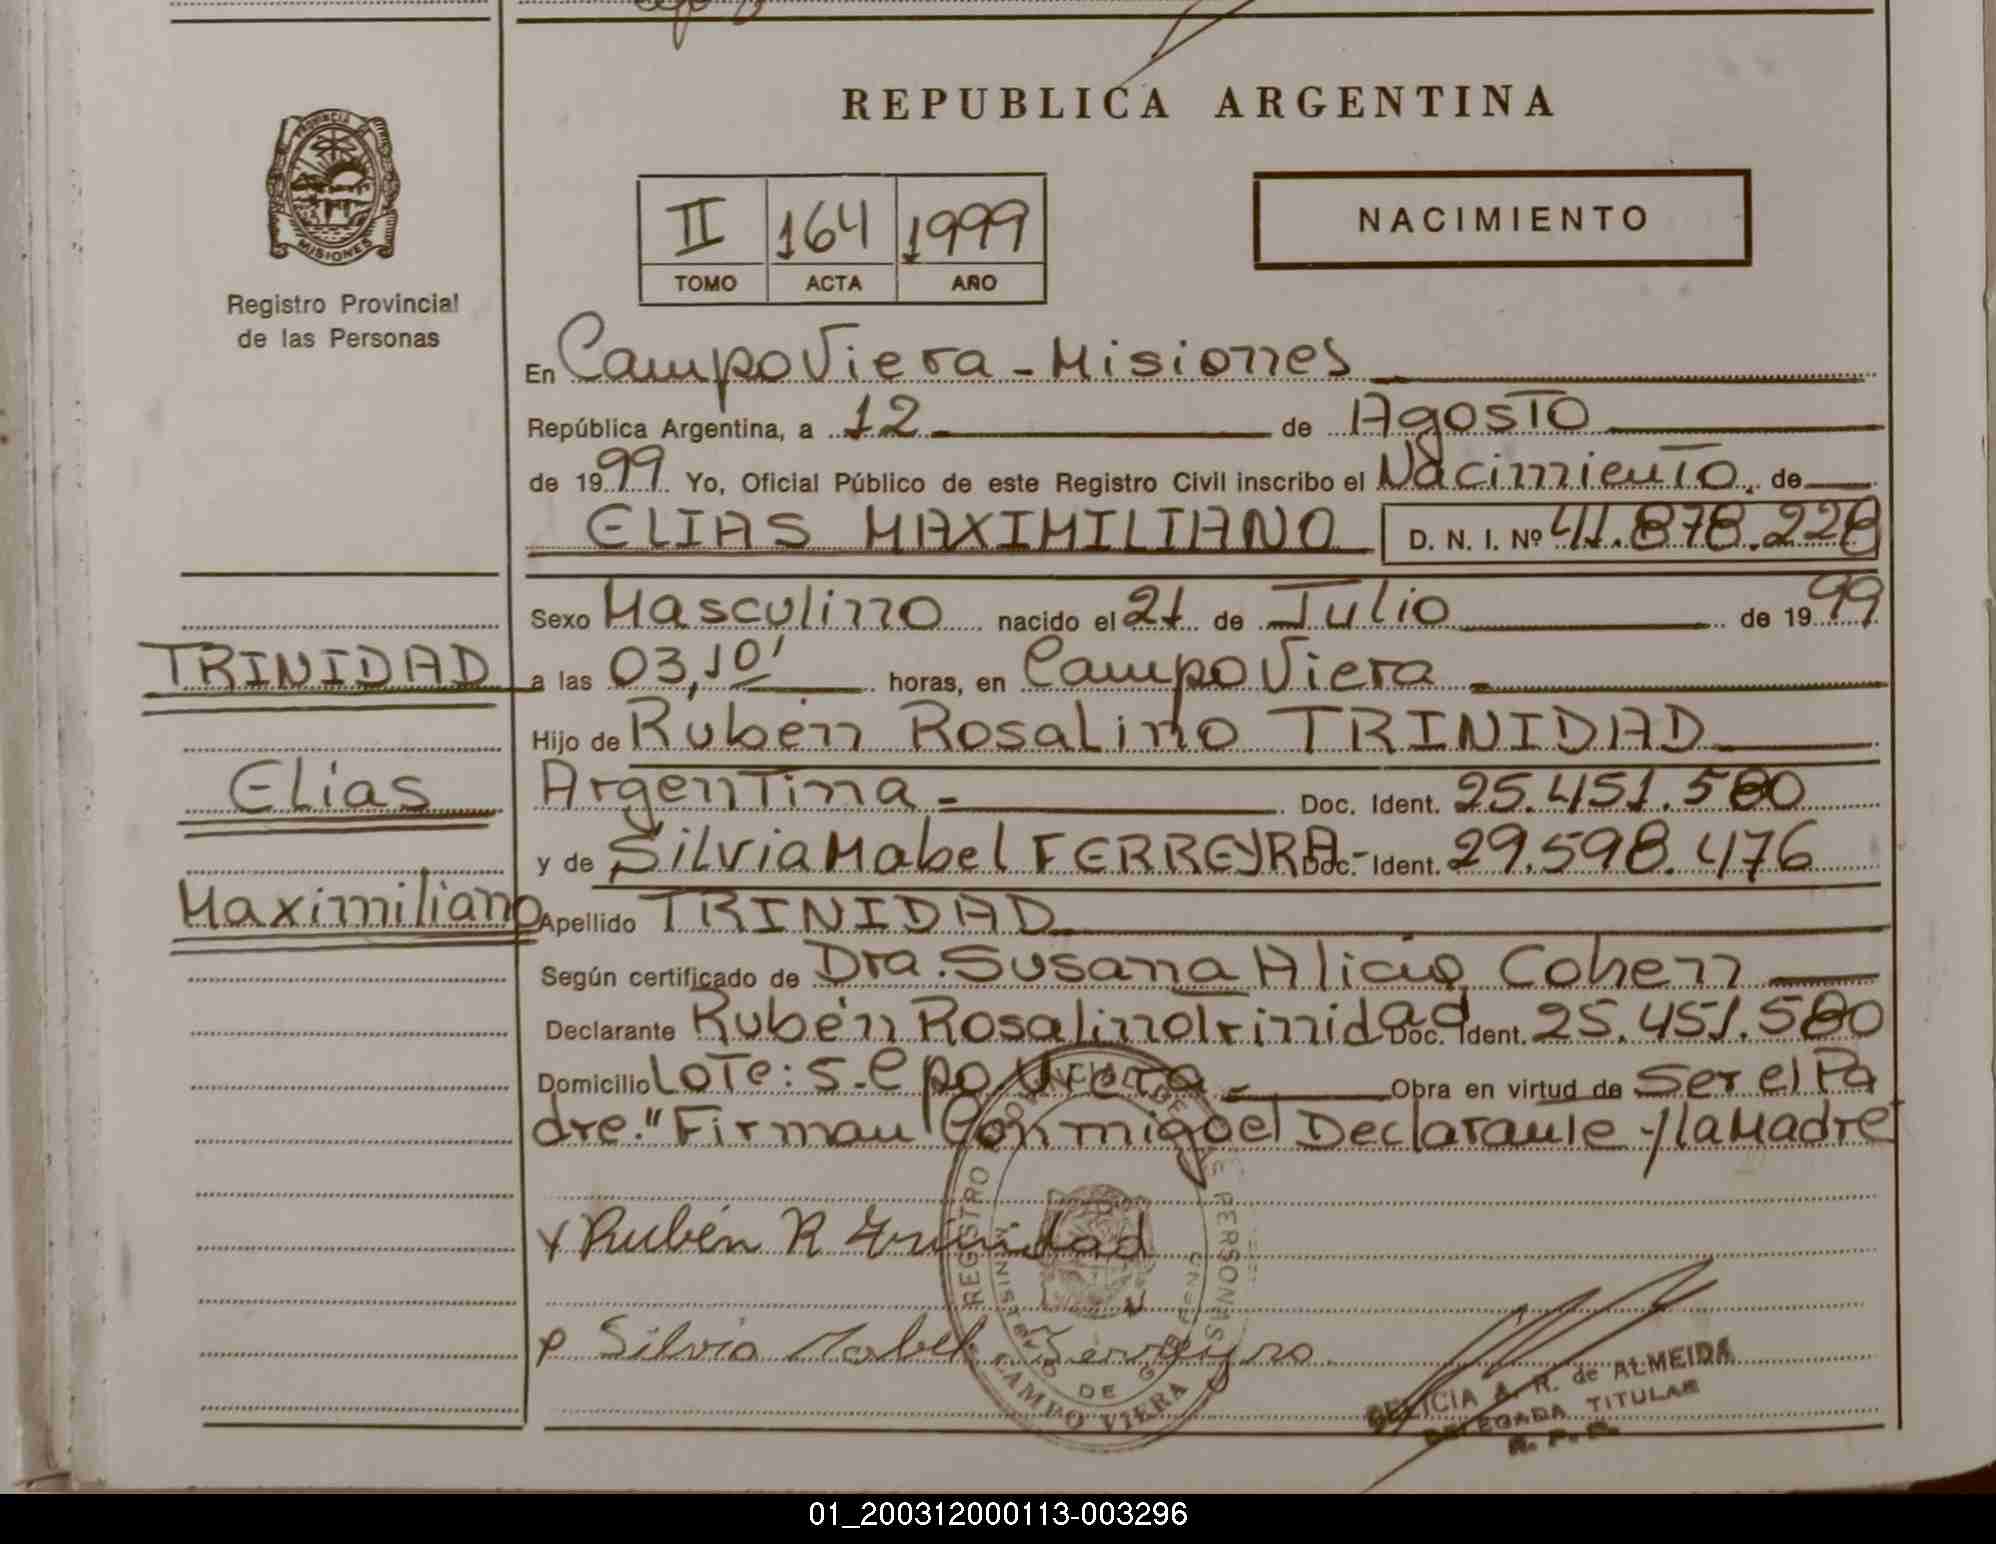 REPUBLICA ARGENTINA
PROVINCIA DE
MISIONES
Registro Provincial
de las Personas
II 164 1999
TOMO ACTA AÑO
NACIMIENTO
En Campo Viera - Misiones
República Argentina, a 12 de Agosto
de 1999 Yo, Oficial Público de este Registro Civil inscribo el Nacimiento de
ELIAS MAXIMILIANO D. N. I. Nº 41.878.228
Sexo Masculino nacido el 21 de Julio de 1999
TRINIDAD
a las 03,10' horas, en Campo Viera
Hijo de Rubén Rosalino TRINIDAD
Elias
Argentina - Doc. Ident. 25.451.580
y de Silvia Mabel FERREYRA - Doc. Ident. 29.598.476
Maximiliano
Apellido TRINIDAD
Según certificado de Dra. Susana Alicia Cohen
Declarante Rubén Rosalino Trinidad Doc. Ident. 25.451.580
Domicilio Lote: 5 - Cpo Viera - Obra en virtud de Ser el Pa
dre." Firman Conmigo el Declarante y la Madre
x Rubén R Trinidad
Silvia Mabel Ferreyra
REGISTRO PROVINCIAL DE PERSONAS
MINISTERIO DE GOB
CAMPO VIERA
A. R. de ALMEIDA
DELEGADA TITULAR
R. P. P.
01_200312000113-003296